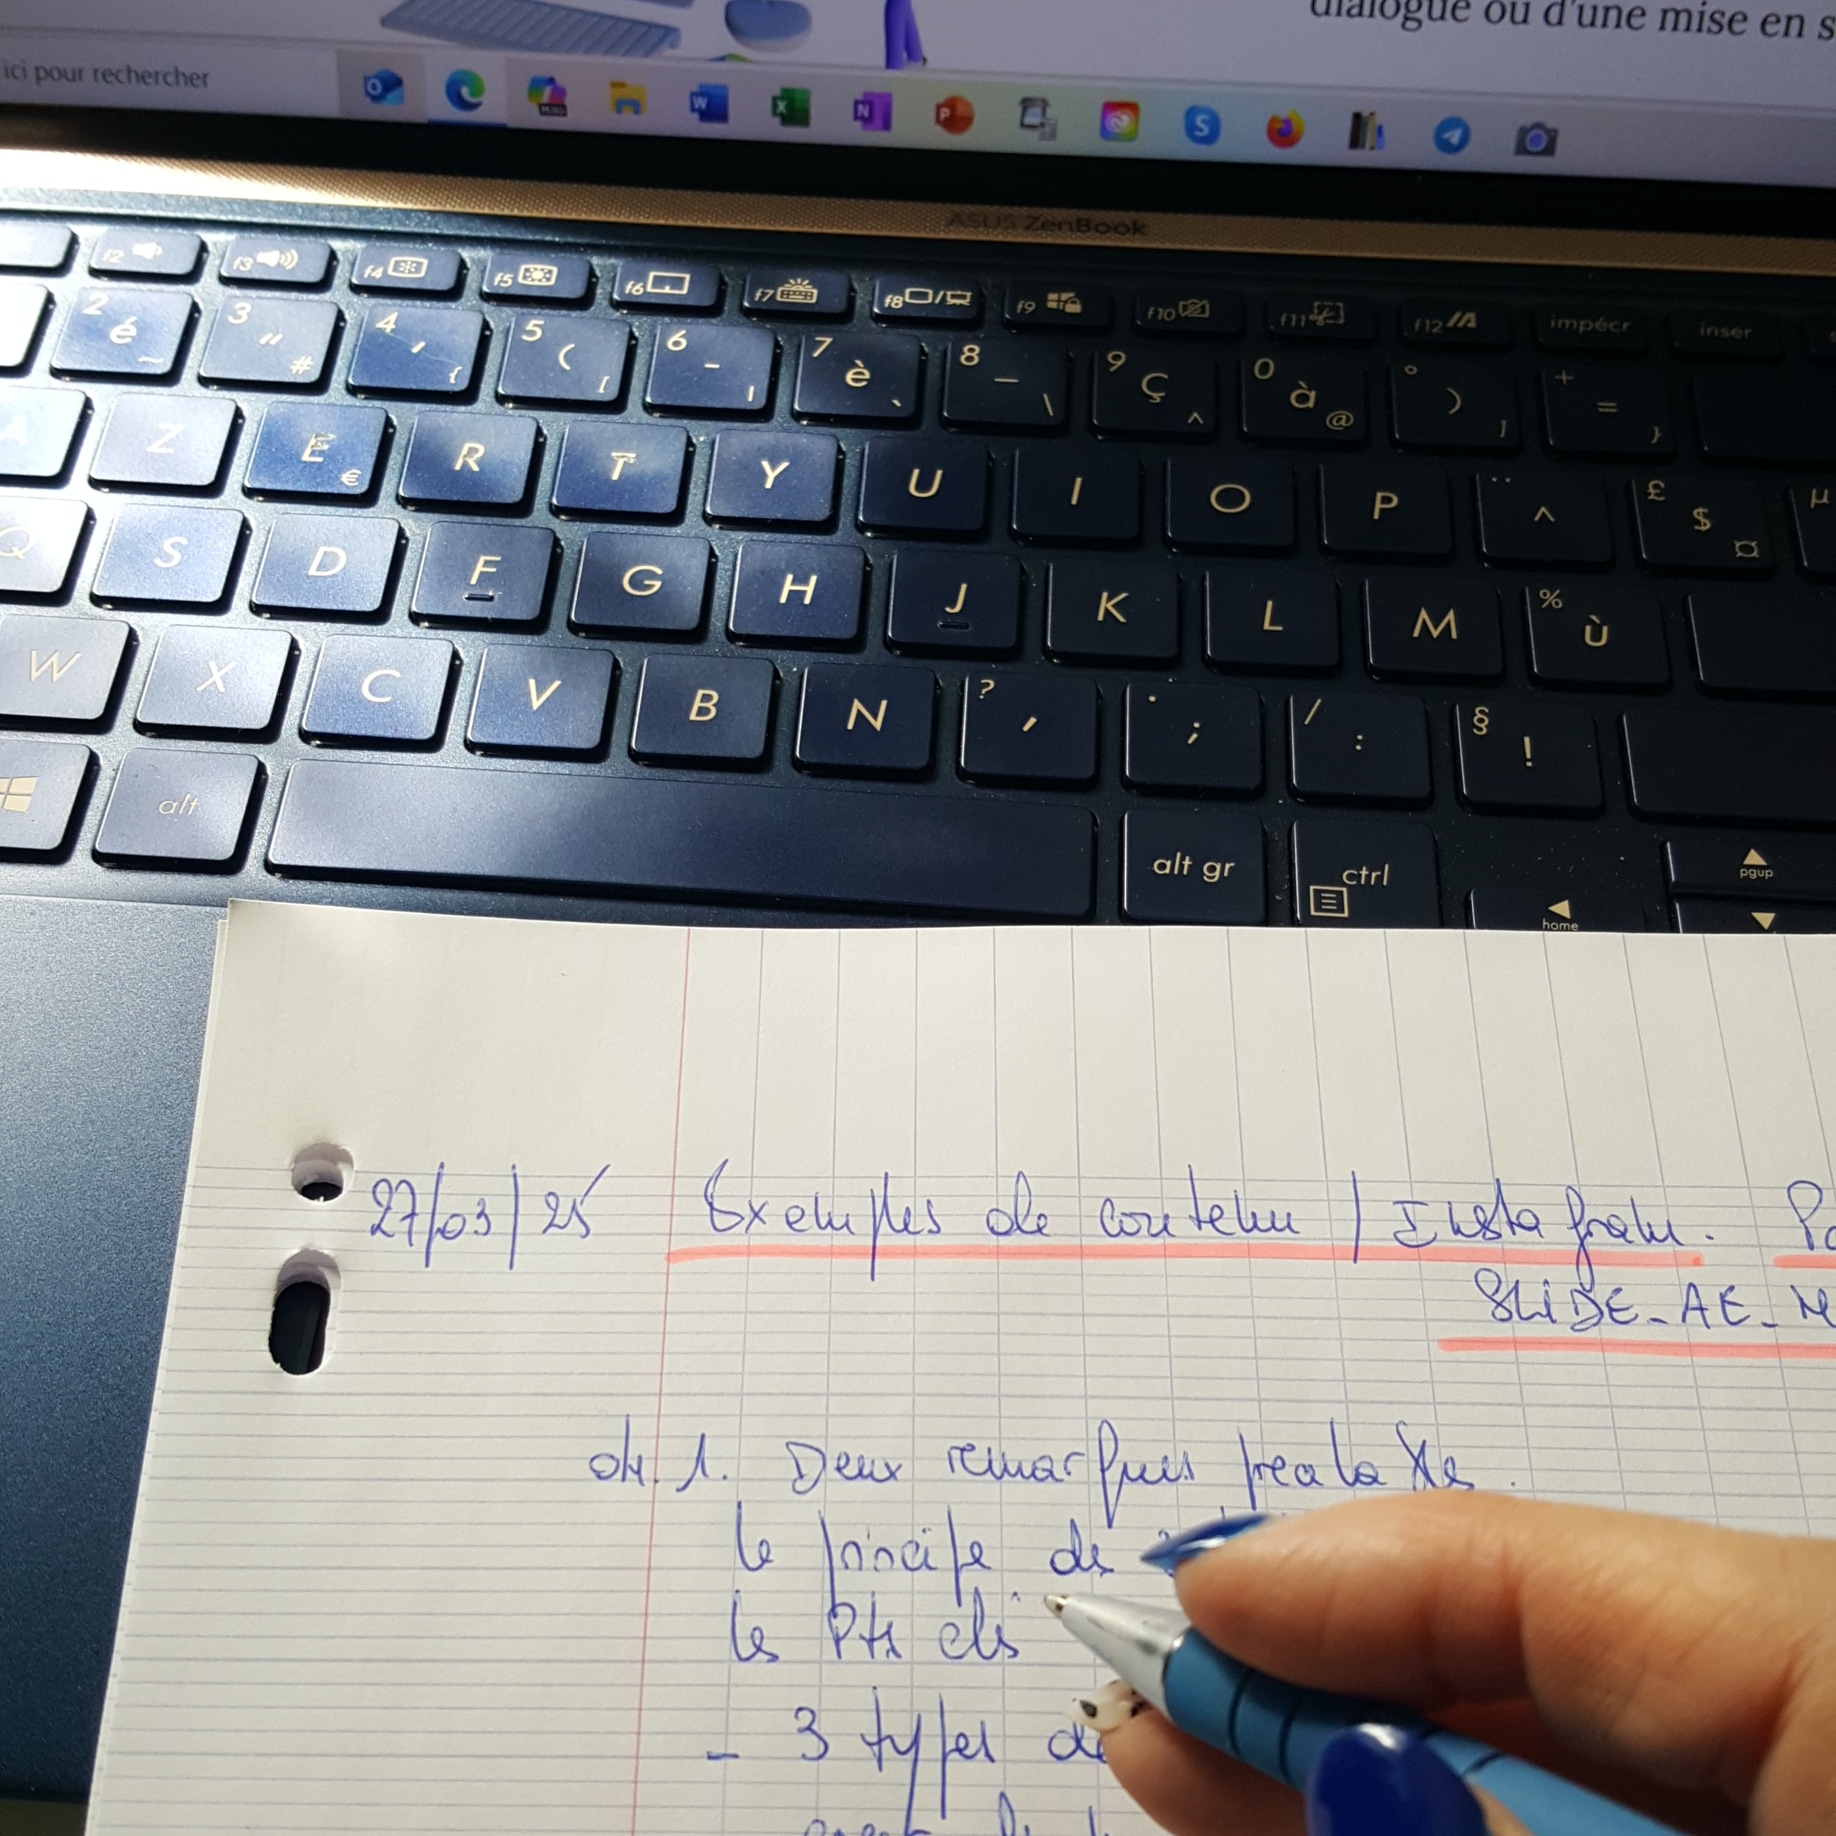 dialogue ou d'une mise en s
ici pour rechercher
ASUS ZenBook
f2 f3 f4 f5 f6 f7 f8 f9 f10 f11 f12 impécr inser
2 é ~ 3 " # 4 ' { 5 ( [ 6 - | 7 è ` 8 _ \ 9 ç ^ 0 à @ ° ) ] + = }
A Z E € R T Y U I O P ¨ ^ £ $ ¤ µ
Q S D F G H J K L M % ù
W X C V B N ? , . ; / : § !
alt alt gr ctrl pgup
home
27/03/25 Exemples de contenu / Instagram.
SLiDE_AE_
1. Deux remarques prealables.
le principe de
les Pts clés
- 3 types de